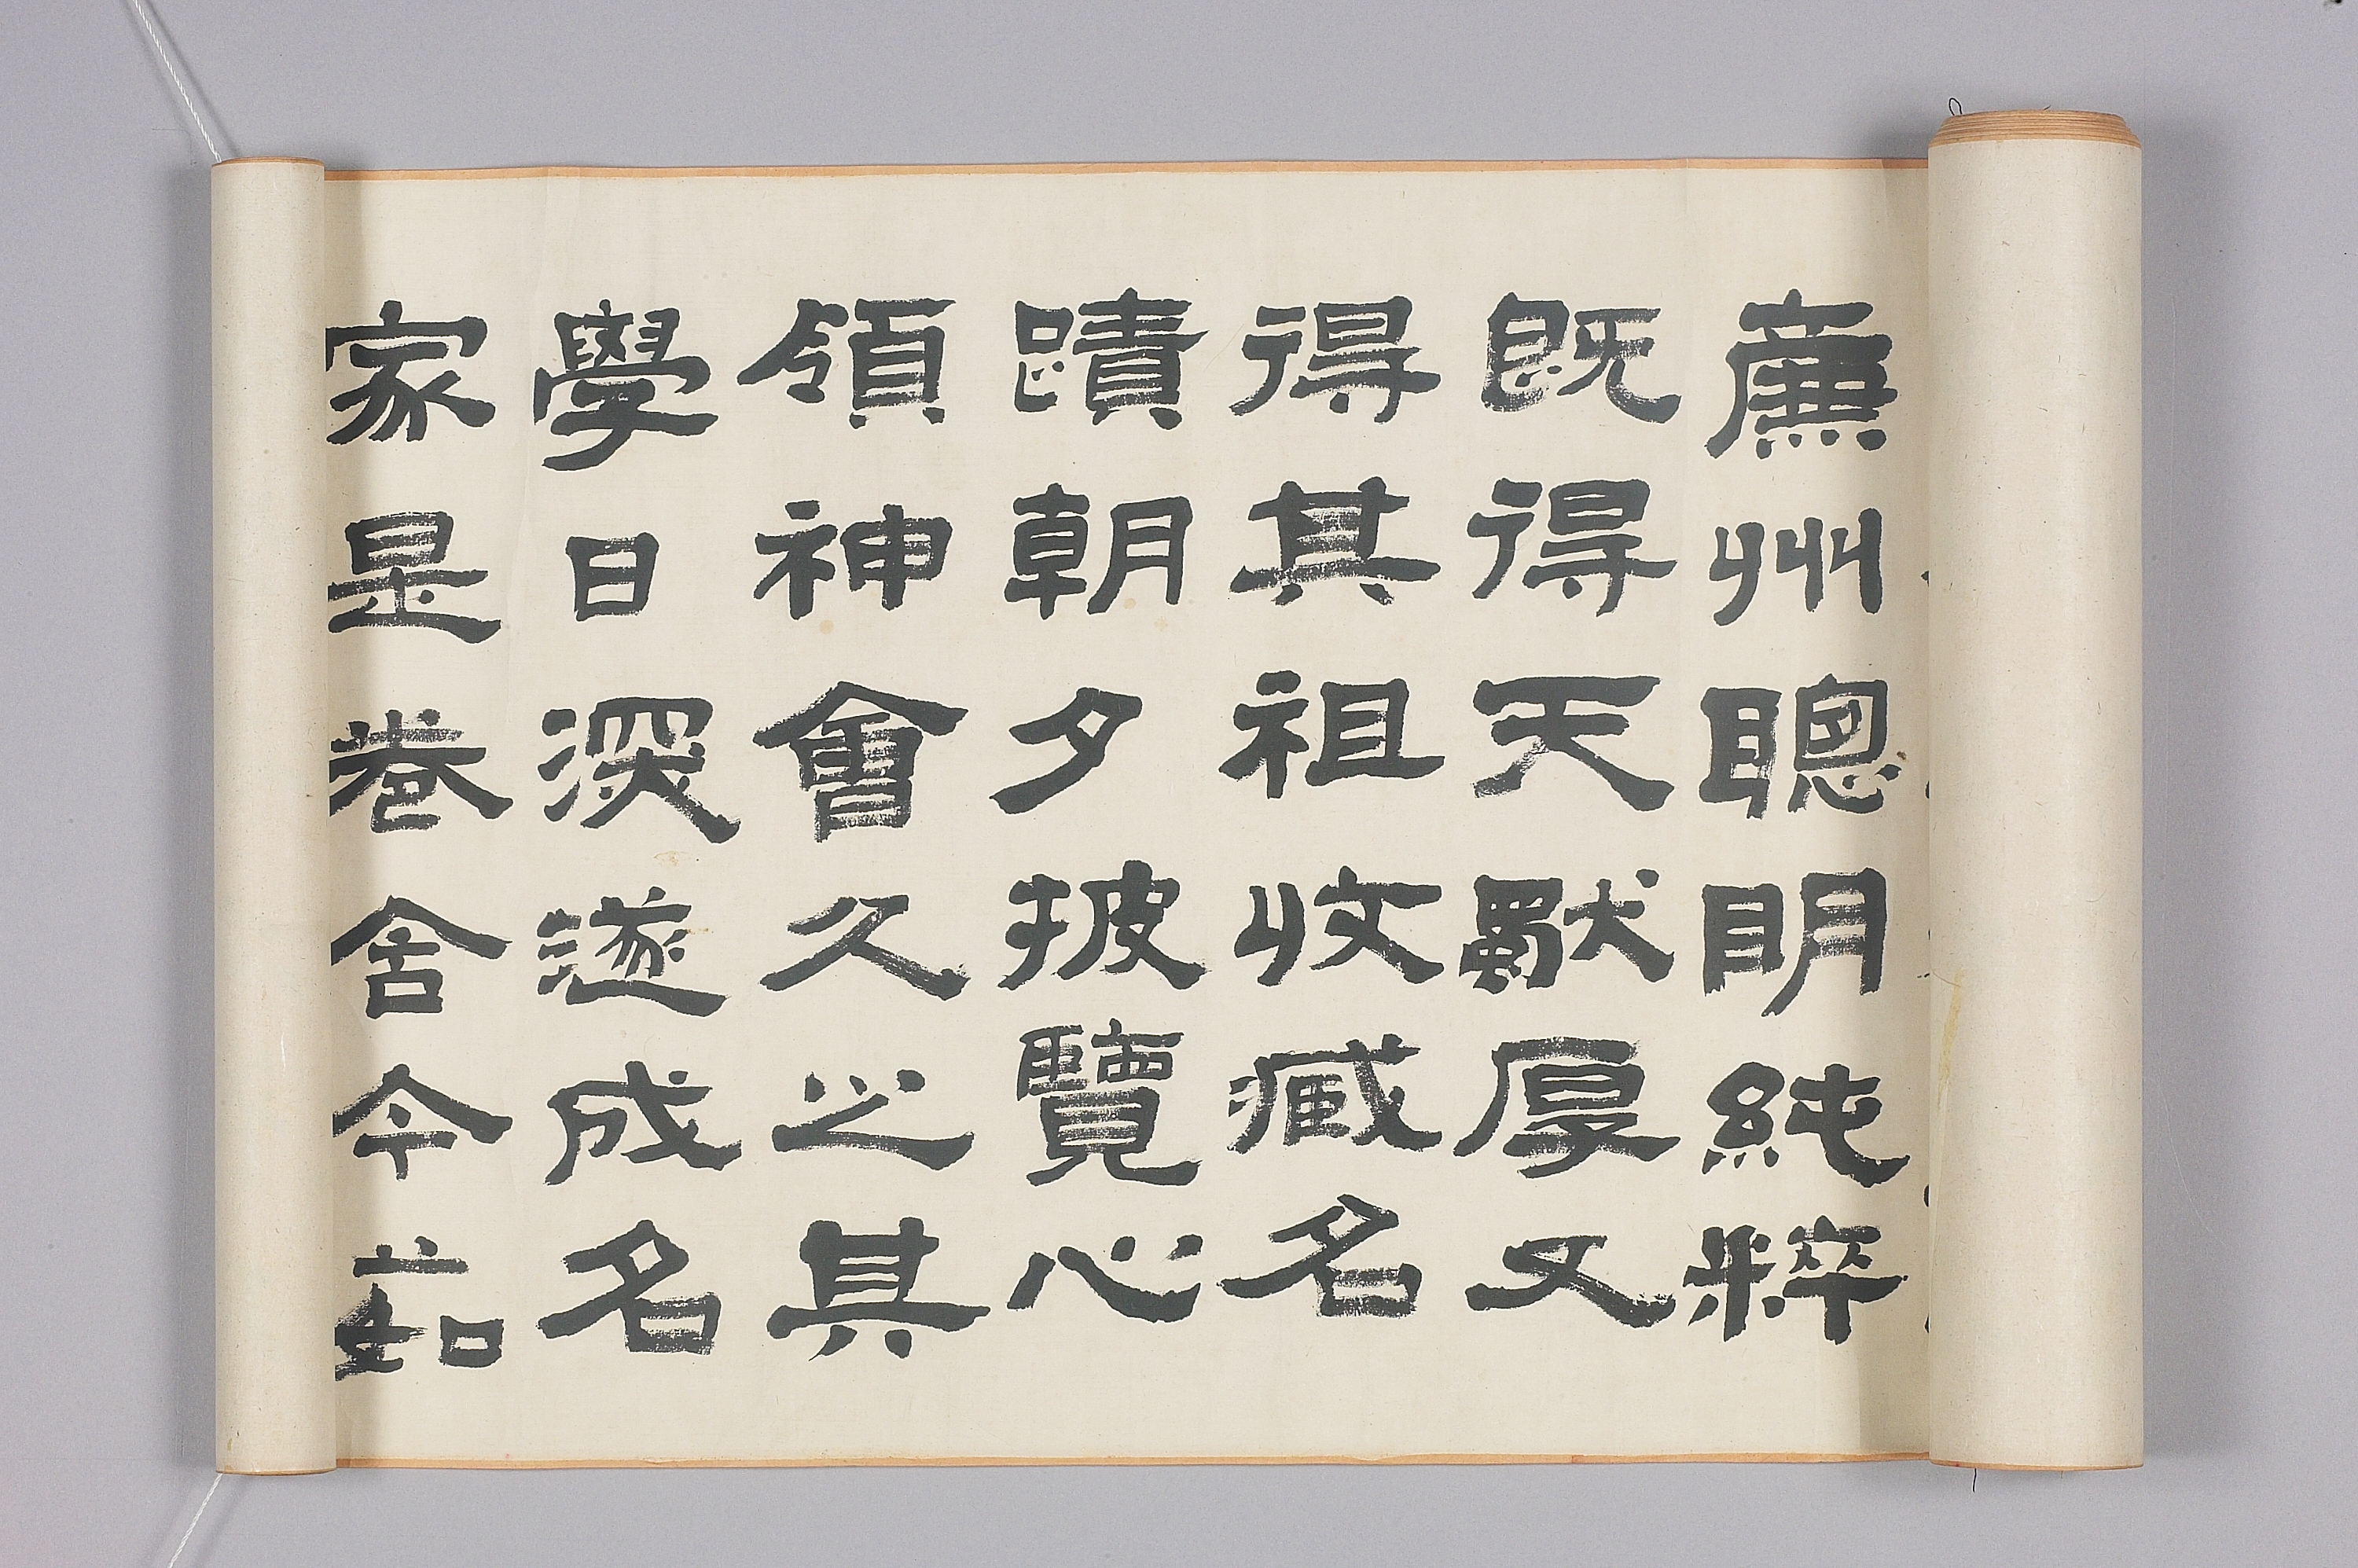 廉州聰明純粹
既得天獸厚又
得其祖收臧名
蹟朝夕披覽心
領神會久之其
學日深遂成名
家是卷舍今茹